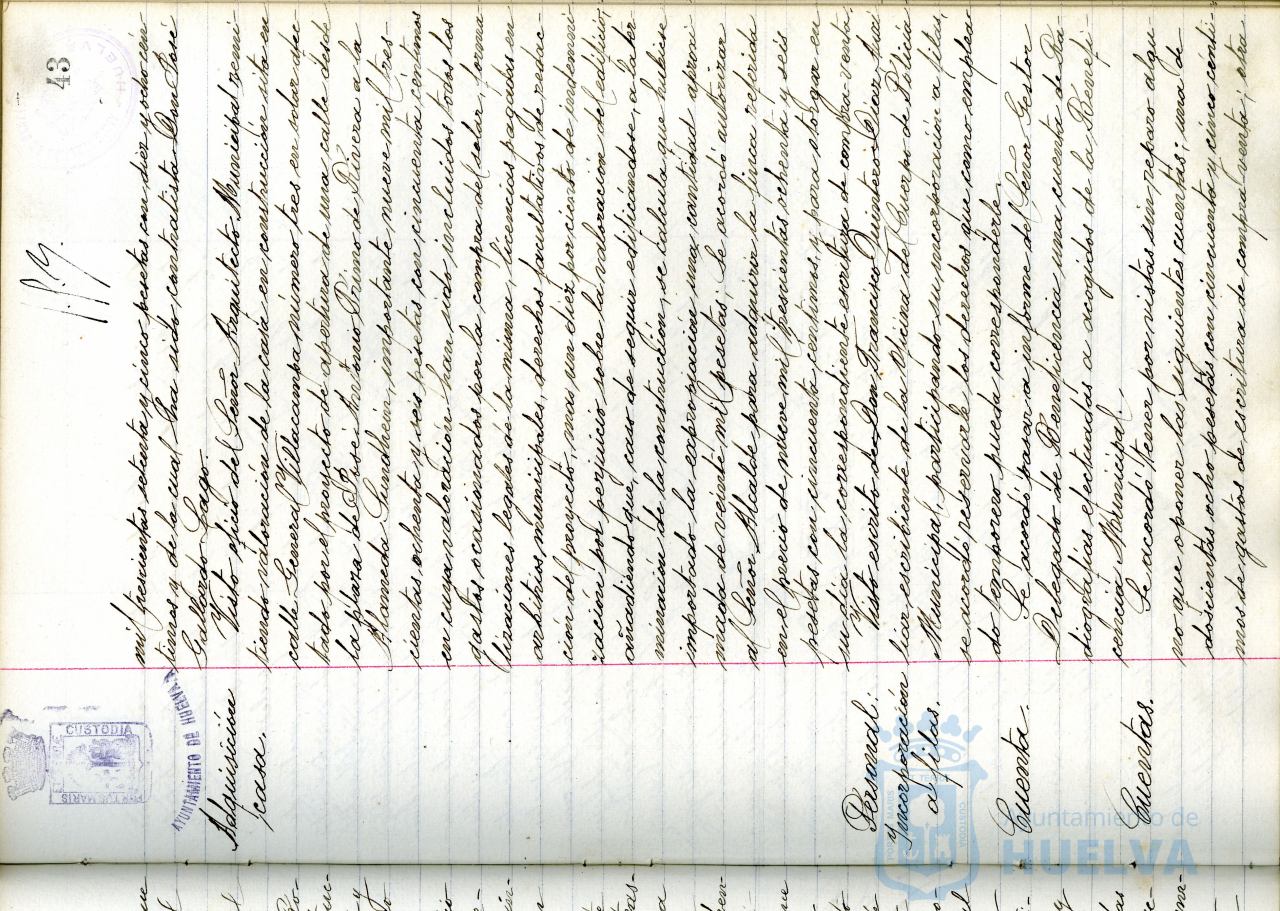 43
mil trescientas setenta y cinco pesetas con diez y ocho cén-
timos y de la cual ha sido contratista Don José
Gallardo Gago.
Adquisición
casa.
Visto oficio del Señor Arquitecto Municipal remi-
tiendo valoración de la casa en construcción sita en
calle General Villacampa número tres en solar afec-
tado por el proyecto de apertura de una calle desde
la plaza de José Antonio Primo de Rivera a la
Alameda Sundheim, importante nueve mil tres-
cientas ochenta y seis pesetas con cincuenta céntimos
en cuya valoración han sido incluidos todos los
gastos ocasionados por la compra del solar, forma-
lizaciones legales de la misma, licencias pagadas en
arbitrios municipales, derechos facultativos de redac-
ción del proyecto, mas un diez por ciento de indemni-
zación por perjuicio sobre la valoración del edificio,
añadiendo que, caso de seguir edificándose, a la ter-
minación de la construcción, se calcula que hubiese
importado la expropiación una cantidad aproxi-
mada de veinte mil pesetas, se acordó autorizar
al Señor Alcalde para adquirir la finca referida
en el precio de nueve mil trescientas ochenta y seis
pesetas con cincuenta céntimos, y para otorgar en
su día la correspondiente escritura de compra-venta.
Personal:
y
incorporación
a filas.
Visto escrito de Don Francisco Quintero Díaz, auxi-
liar escribiente de la Oficina del Cuerpo de Policía
Municipal, participando su incorporación a filas,
se acordó reservarle los derechos que como emplea-
do temporero pueda corresponderle.
Cuenta.
Se acordó pasar a informe del Señor Gestor
Delegado de Beneficencia una cuenta de Ra-
diografías efectuadas a acogidos de la Benefi-
cencia Municipal.
Cuentas.
Se acordó tener por vistas sin reparo algu-
no que oponer las siguientes cuentas; una de
doscientas ocho pesetas con cincuenta y cinco cénti-
mos de gastos de escritura de compra venta; otra
CUSTODIA
AYUNTAMIENTO DE HUELVA
Ayuntamiento de
HUELVA